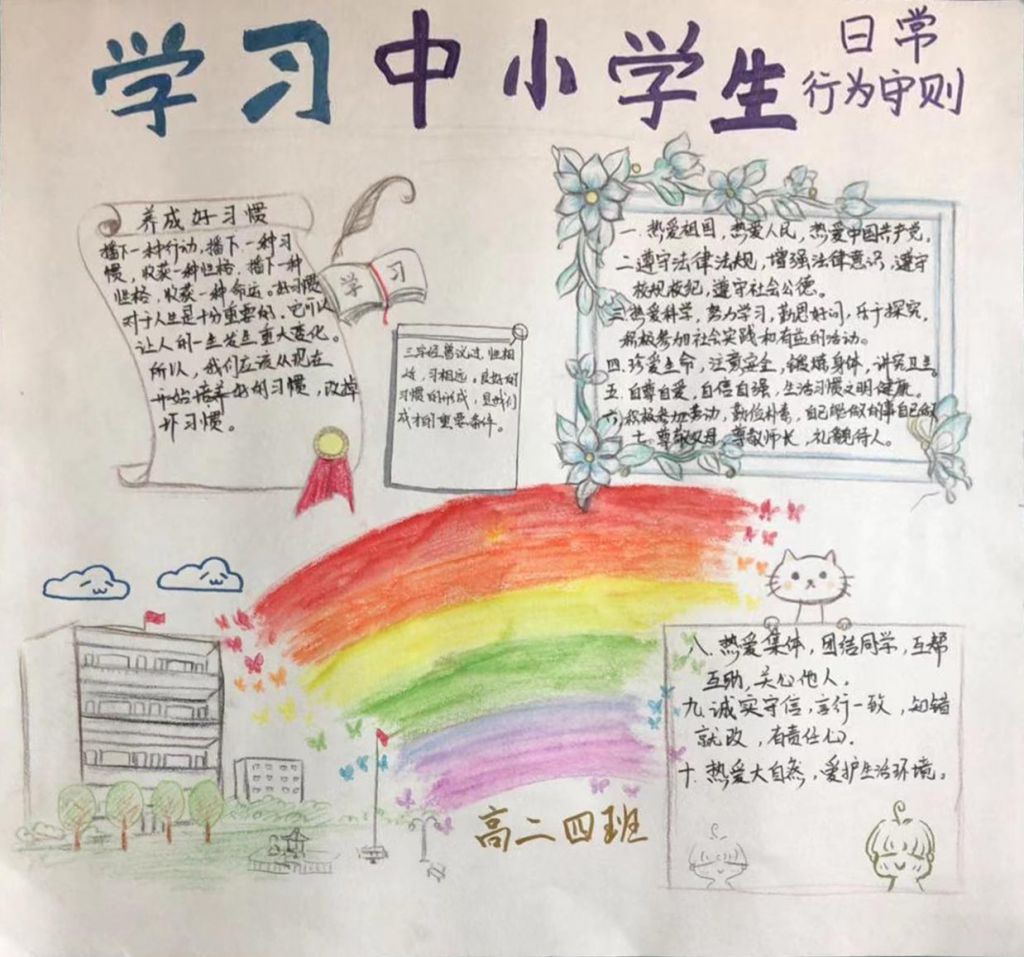 学习中小学生
日常
行为守则
养成好习惯
播下一种行动,播下一种习
惯,收获一种性格,播下一种
性格,收获一种命运。好习惯
对于人生是十分重要的,它可以
让人的一生发生重大变化。
所以,我们应该从现在
开始培养好的习惯,改掉
坏习惯。
学习
三字经曾说过,性相
近,习相远。良好的
习惯的形成,是我们
成才的重要条件。
一.热爱祖国,热爱人民,热爱中国共产党。
二遵守法律法规,增强法律意识,遵守
校规校纪,遵守社会公德。
三.热爱科学,努力学习,勤思好问,乐于探究,
积极参加社会实践和有益的活动。
四.珍爱生命,注意安全,锻炼身体,讲究卫生。
五.自尊自爱,自信自强,生活习惯文明健康。
六,积极参加劳动,勤俭朴素,自己能做的事自己做
七.尊敬父母,尊敬师长,礼貌待人。
八.热爱集体,团结同学,互帮
互助,关心他人.
九.诚实守信,言行一致,知错
就改,有责任心.
十.热爱大自然,爱护生活环境。
高二四班